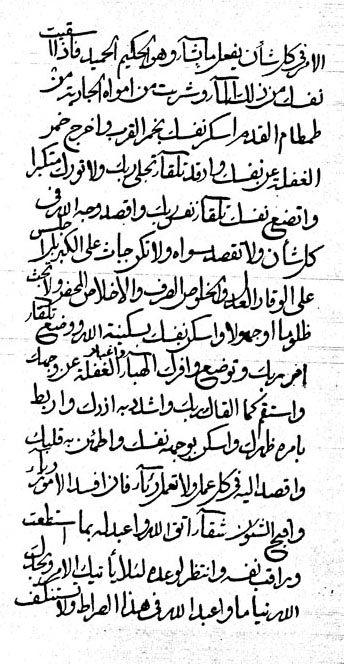 الامر فی كل شأن یفعل ما یشآء وهو الحكیم الحمید فاذا سقیت
نفسك من ذلك المآء وشربت من امواه الجاریة من
طمطام القدم اسكر نفسك بخمر القرب واخرج خمر
الغفلة عن نفسك وارقد تلقآء تجلی ربك ولا تورك متكبرا
واتضع نفسك تلقآء نفس ربك واقصد وجه الله فی
كل شأن ولا تقصد سواه ولا تكن جاث علی الكبر بل اجلس
علی الوقار والخلوص الصرف والاخلاص المحض ولا تجث
ظلوما او جهولا واسكن نفسك بسكینة الله ووضع تلقآء
امر ربك وتوضع وافرك الهبآء واغبار الغفلة عن وجهك
واستقم كما القال ربك واشدد به ازرك واربط
بامره ظهرك واسكن بوجهه نفسك واطمئن به قلبك
واقصد الیه فی كل عمل ولا تعمل ریآء فان افسد الامور ریآء
واقبح الشئون شقآء اتق الله واعبد له بما استطعت
وراقب نفسه وانتظر لوعده لئلا یأتیك الامر وتجدك
الله نیاما واعبد الله فی هذا الصراط ولا تستنكف